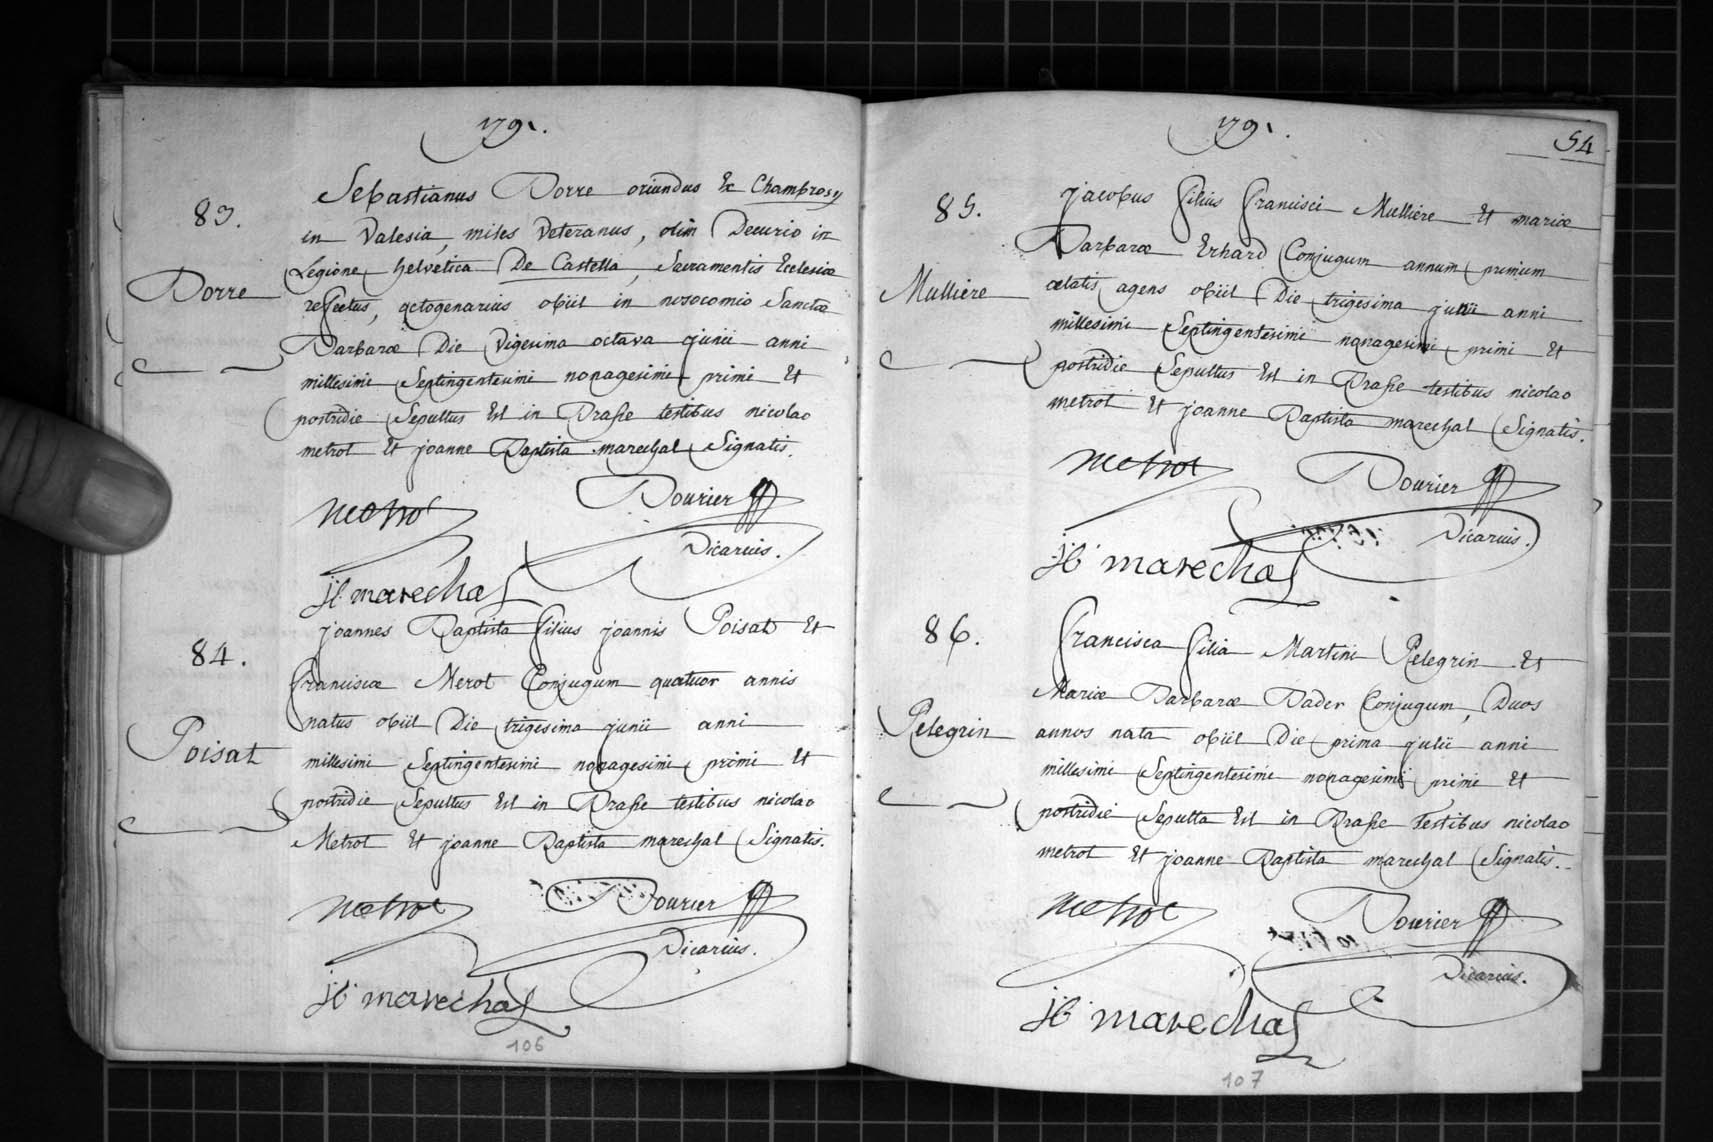 1791.
83.
Dorre
Sebastianus Dorre oriundus Ex Chambrosy
in Valesia, miles Veteranus, olim Decurio in
Legione helvetica De Castella, Sacramentis Ecclesiæ
refectus, octogenarius obiit in nosocomio Sanctæ
Barbaræ Die Vigesima octava junii anni
millesimi Septingentesimi nonagesimi primi Et
postridie Sepultus Est in Prasse testibus nicolao
metrot Et joanne Baptista marechal Signatis.
metrot
Bourier
Vicarius.
jb marechal
84.
Poisat
joannes Baptista filius joannis Poisat Et
franciscæ Merot Conjugum quatuor annis
natus obiit Die trigesima junii anni
millesimi Septingentesimi nonagesimi primi Et
postridie Sepultus Est in Prasse testibus nicolao
Metrot Et joanne Baptista marechal Signatis.
metrot
Bourier
Vicarius.
jb marechal
106
1791.
54
85.
Mulliere
jacobus filius francisci Mulliere Et mariæ
Barbaræ Erhard Conjugum annum primum
ætatis agens obiit Die trigesima junii anni
millesimi Septingentesimi nonagesimi primi Et
postridie Sepultus Est in Prasse testibus nicolao
metrot Et joanne Baptista marechal Signatis.
metrot
Bourier
Vicarius.
jb marechal
86.
Pelegrin
francisca filia Martini Pelegrin Et
Mariæ Barbaræ Bader Conjugum, Duos
annos nata obiit Die prima julii anni
millesimi Septingentesimi nonagesimi primi Et
postridie Sepulta Est in Prasse Testibus nicolao
metrot Et joanne Baptista marechal Signatis.
metrot
Bourier
Vicarius.
jb marechal
107